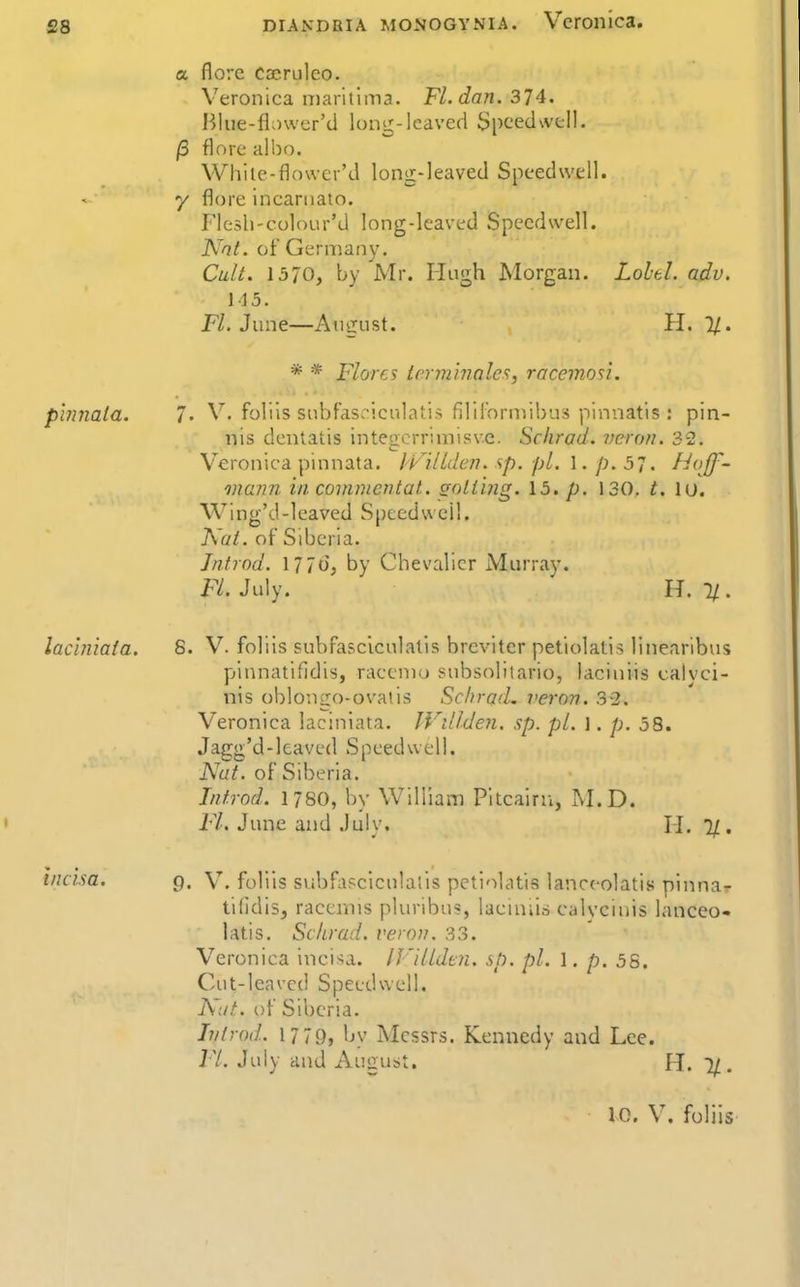 28 DIANDRIA MONOGYNIA. Veronica.
α flore cæruleo.
Veronica maritima. Fl. dan. 374.
Blue-flower'd long-leaved Speedwell.
β flore albo.
White-flower'd long-leaved Speedwell.
γ flore incarnato.
Flesh-colour'd long-leaved Speedwell.
Nat. of Germany.
Cult. 1570, by Mr. Hugh Morgan. Lobel. adv.
145.
Fl. June—August. H. ♃.
* * Flores terminales, racemosi.
pinnata. 7. V. foliis subfasciculatis filiformibus pinnatis: pin-
nis dentatis integerrimisve. Schrad. veron. 32.
Veronica pinnata. Willden. sp. pl. 1. p. 57. Hoff-
mann in commentat. gotting. 15. p. 130. t. 10.
Wing'd-leaved Speedwell.
Nat. of Siberia.
Introd. 1776, by Chevalier Murray.
Fl. July. H. ♃.
laciniata. 8. V. foliis subfasciculatis breviter petiolatis linearibus
pinnatifidis, racemo subsolitario, laciniis calyci-
nis oblongo-ovatis Schrad. veron. 32.
Veronica laciniata. Willden. sp. pl. 1. p. 58.
Jagg'd-leaved Speedwell.
Nat. of Siberia.
Introd. 1780, by William Pitcairn, M.D.
Fl. June and July. H. ♃.
incisa. 9. V. foliis subfasciculatis petiolatis lanceolatis pinna-
tifidis, racemis pluribus, laciniis calycinis lanceo-
latis. Schrad. veron. 33.
Veronica incisa. Willden. sp. pl. 1. p. 58.
Cut-leaved Speedwell.
Nat. of Siberia.
Introd. 1779, by Messrs. Kennedy and Lee.
Fl. July and August. H. ♃.
10. V. foliis